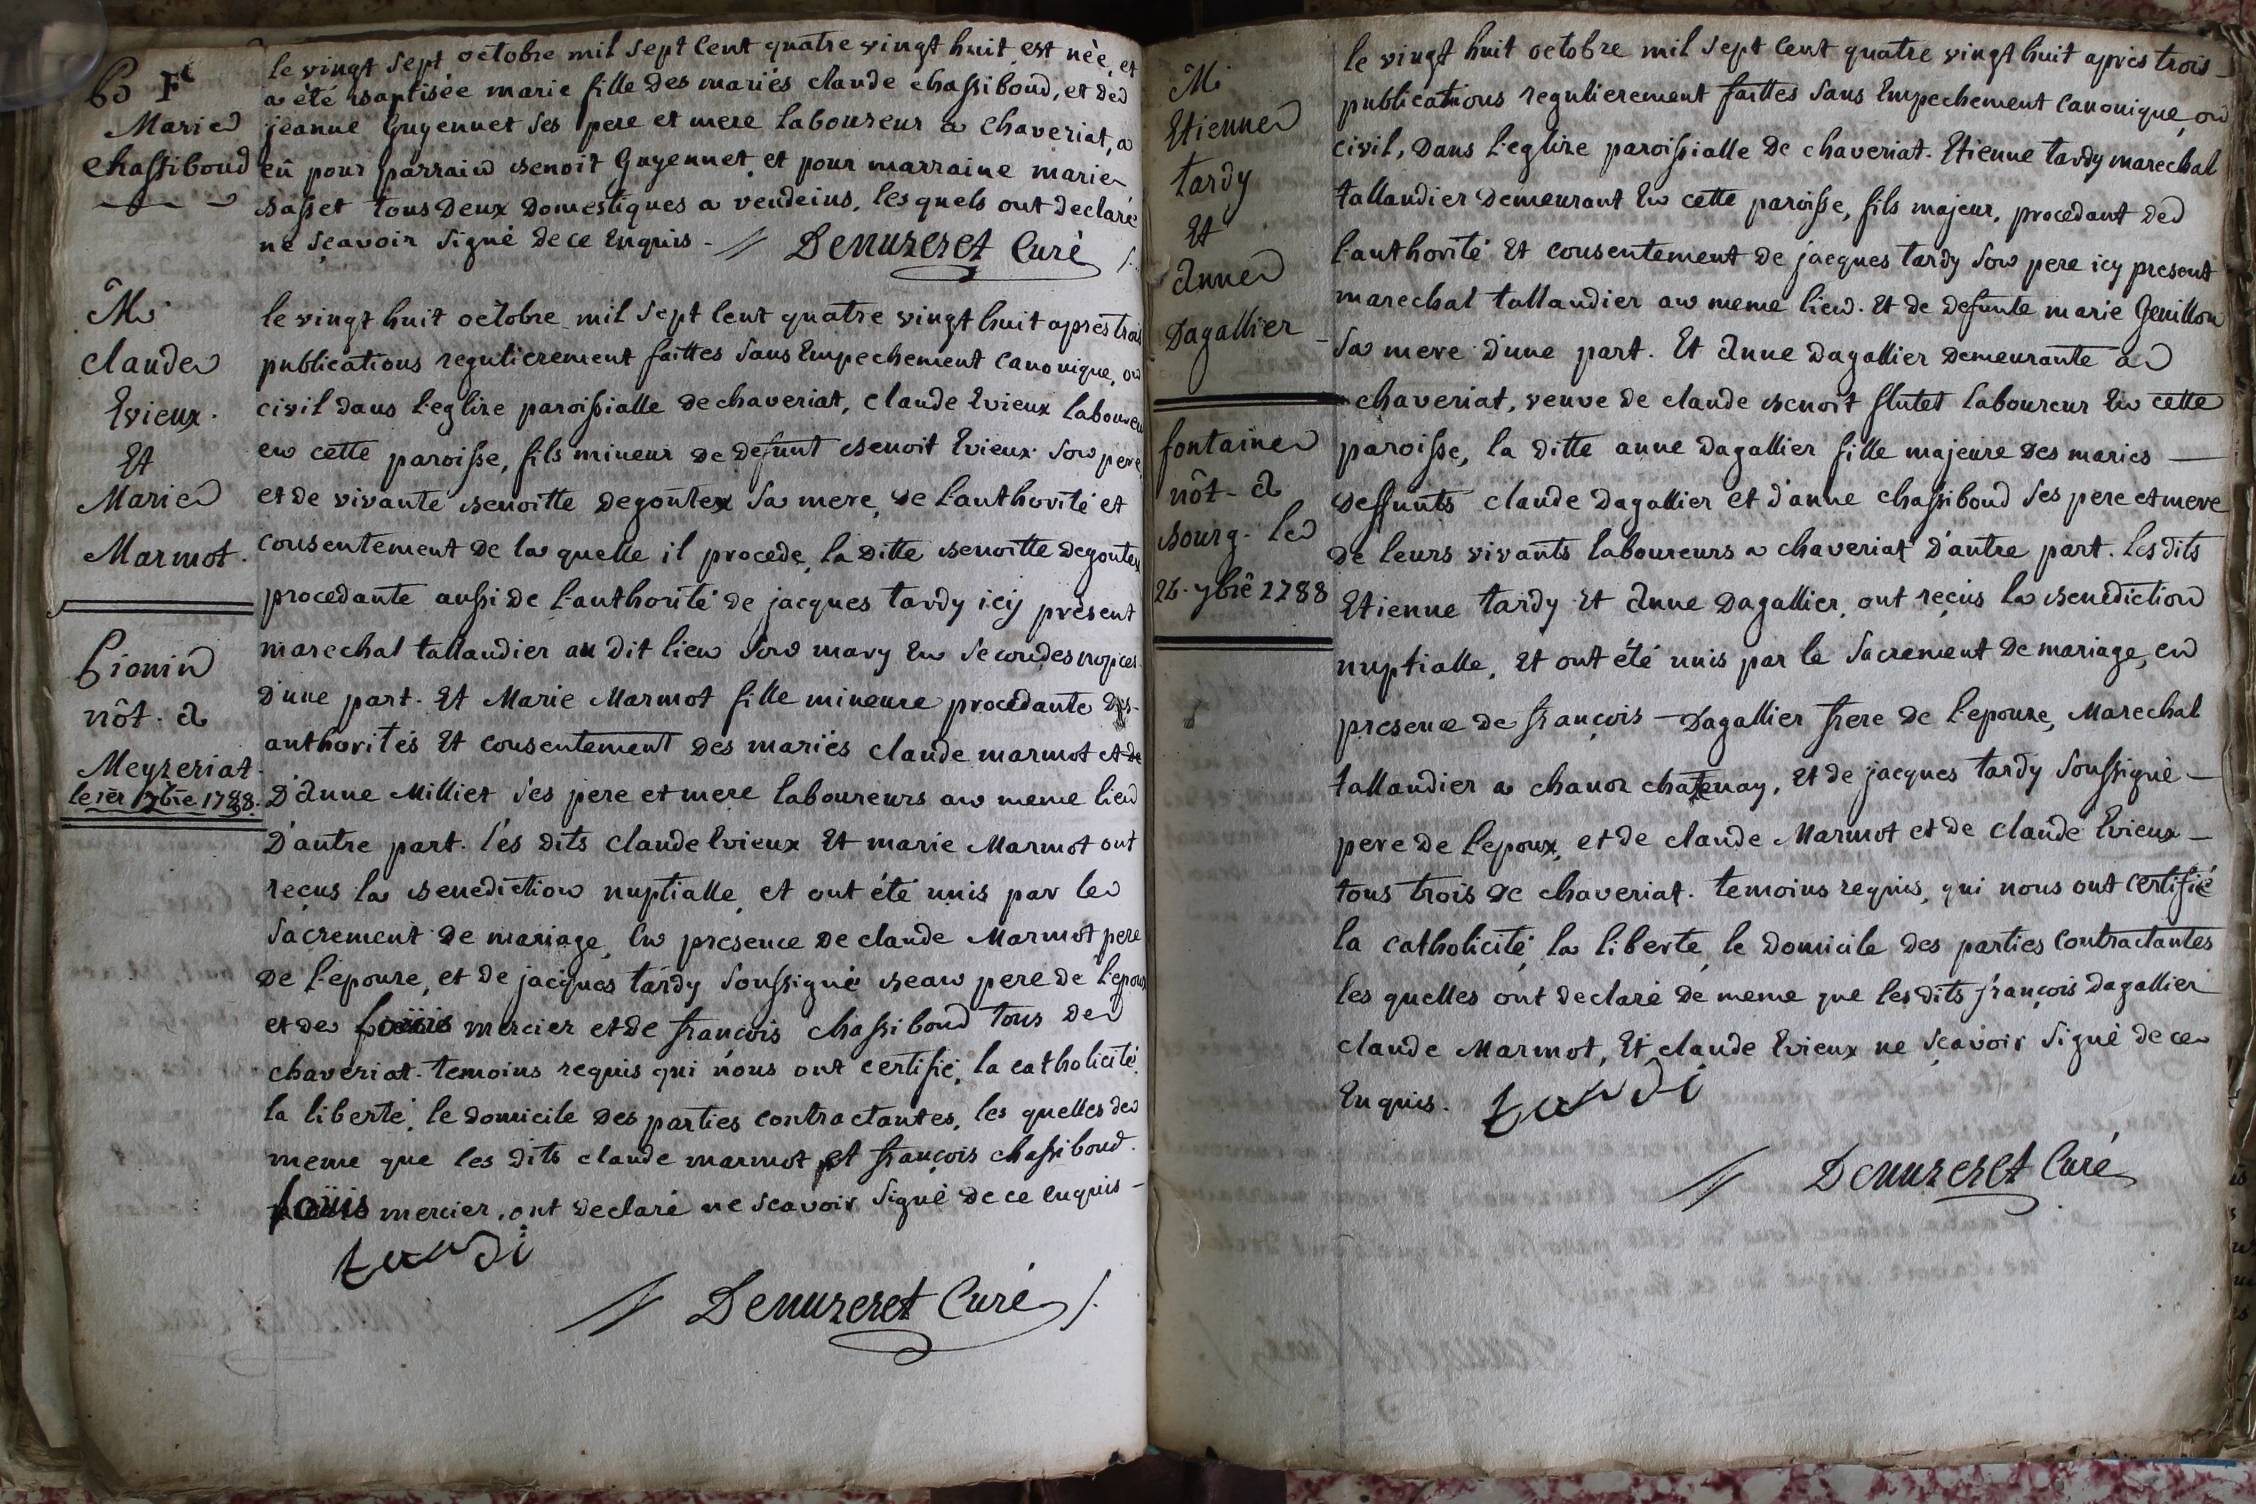 B Fe
Marie
chassiboud
le vingt sept octobre mil sept cent quatre vingt huit est née, et
a été baptisée marie fille des mariés claude chassiboud, et de
jeanne Guyennet ses pere et mere laboureur a chaveriat, a
eû pour parrain benoit Guyennet, et pour marraine marie
basset tous deux domestiques a vendeins, les quels ont declaré
ne sçavoir signé de ce enquis - // Denuzeret Curé
M.
claude
Evieux.
Et
Marie
Marmot.
nôt. a
Meyzeriat
le 1er 7bre 1788.
le vingt huit octobre mil sept cent quatre vingt huit apres trois
publications regulierement faittes sans Empechement canonique, ou
civil dans l'eglize paroissialle de chaveriat, claude Evieux laboureur
en cette paroisse, fils mineur de defunt benoit Evieux son pere
et de vivante benoitte degoutex sa mere, de l'authorité et
consentement de la quelle il procede, la ditte benoitte degoutex
procedante aussi de l'authorité de jacques tardy icij present
marechal tallandier au dit lieu son mary En secondes nopces
d'une part. Et Marie Marmot fille mineure procedante des
authorités Et consentement des mariés claude marmot et de
D'Anne Milliet ses pere et mere laboureurs au meme lieu
D'autre part. lés dits claude Evieux Et marie Marmot ont
reçus la benediction nuptialle, et ont été unis par le
sacrement de mariage, En presence de claude Marmot pere
de l'epouze, et de jacques tardy soussigné beau pere de l'epoux
et de Loüis mercier et de françois chassiboud tous de
chaveriat. temoins requis qui nous ont certifié, la catholicité,
la liberté, le domicile des parties contractantes, les quelles de
meme que les dits claude marmot et françois chassiboud.
Loüis mercier, ont declaré ne scavoir signé de ce enquis -
tardi
// Denuzeret Curé
M.
Etienne
tardy
Et
Anne
Dagallier
fontaine
nôt - a
bourg - le
26. 7bre 1788
le vingt huit octobre mil sept cent quatre vingt huit après trois
publications regulierement faittes sans Empechement canonique, ou
civil, dans l'eglize paroissialle de chaveriat. Etienne tardy marechal
tallandier demeurant En cette paroisse, fils majeur, procedant de
l'authorité Et consentement de jacques tardy son pere icy present
marechal tallandier au meme lieu. Et de defunte marie Genillon
sa mere d'une part. Et Anne Dagallier demeurante a
chaveriat, veuve de claude benoit flutet laboureur En cette
paroisse, la ditte anne dagallier fille majeure des maries
deffunts claude Dagallier et d'anne chassiboud ses pere et mere
de leurs vivants laboureurs a chaveriat d'autre part. les dits
Etienne tardy Et Anne Dagallier, ont reçus la benediction
nuptialle, Et ont été unis par le sacrement de mariage, en
presence de françois Dagallier frere de l'epouze, Marechal
tallandier a chanoz chatenay, Et de jacques tardy soussigné
pere de l'epoux, et de claude Marmot et de claude Evieux
tous trois de chaveriat. temoins requis, qui nous ont certifié
la catholicité, la liberté, le domicile des parties contractantes
les quelles ont declaré de meme que les dits françois Dagallier
claude Marmot, Et claude Evieux ne sçavoir signé de ce
Enquis. tardi
// Denuzeret Curé